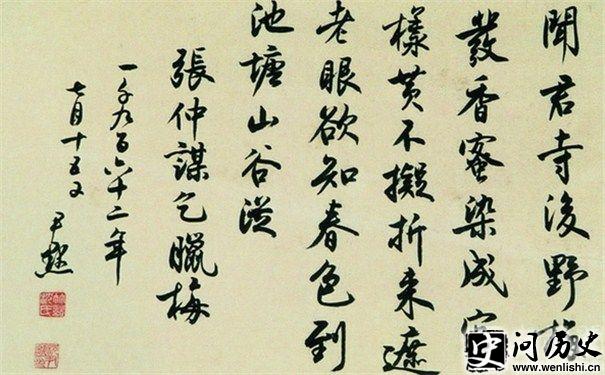 聞君寺後野梅
發香蜜染成宮
樣黄不擬折来遮
老眼欲知春色到
池塘山谷從
張仲謀乞臘梅
一千九百六十二年
七月十五
尹默
问历史
www.wenlishi.cn